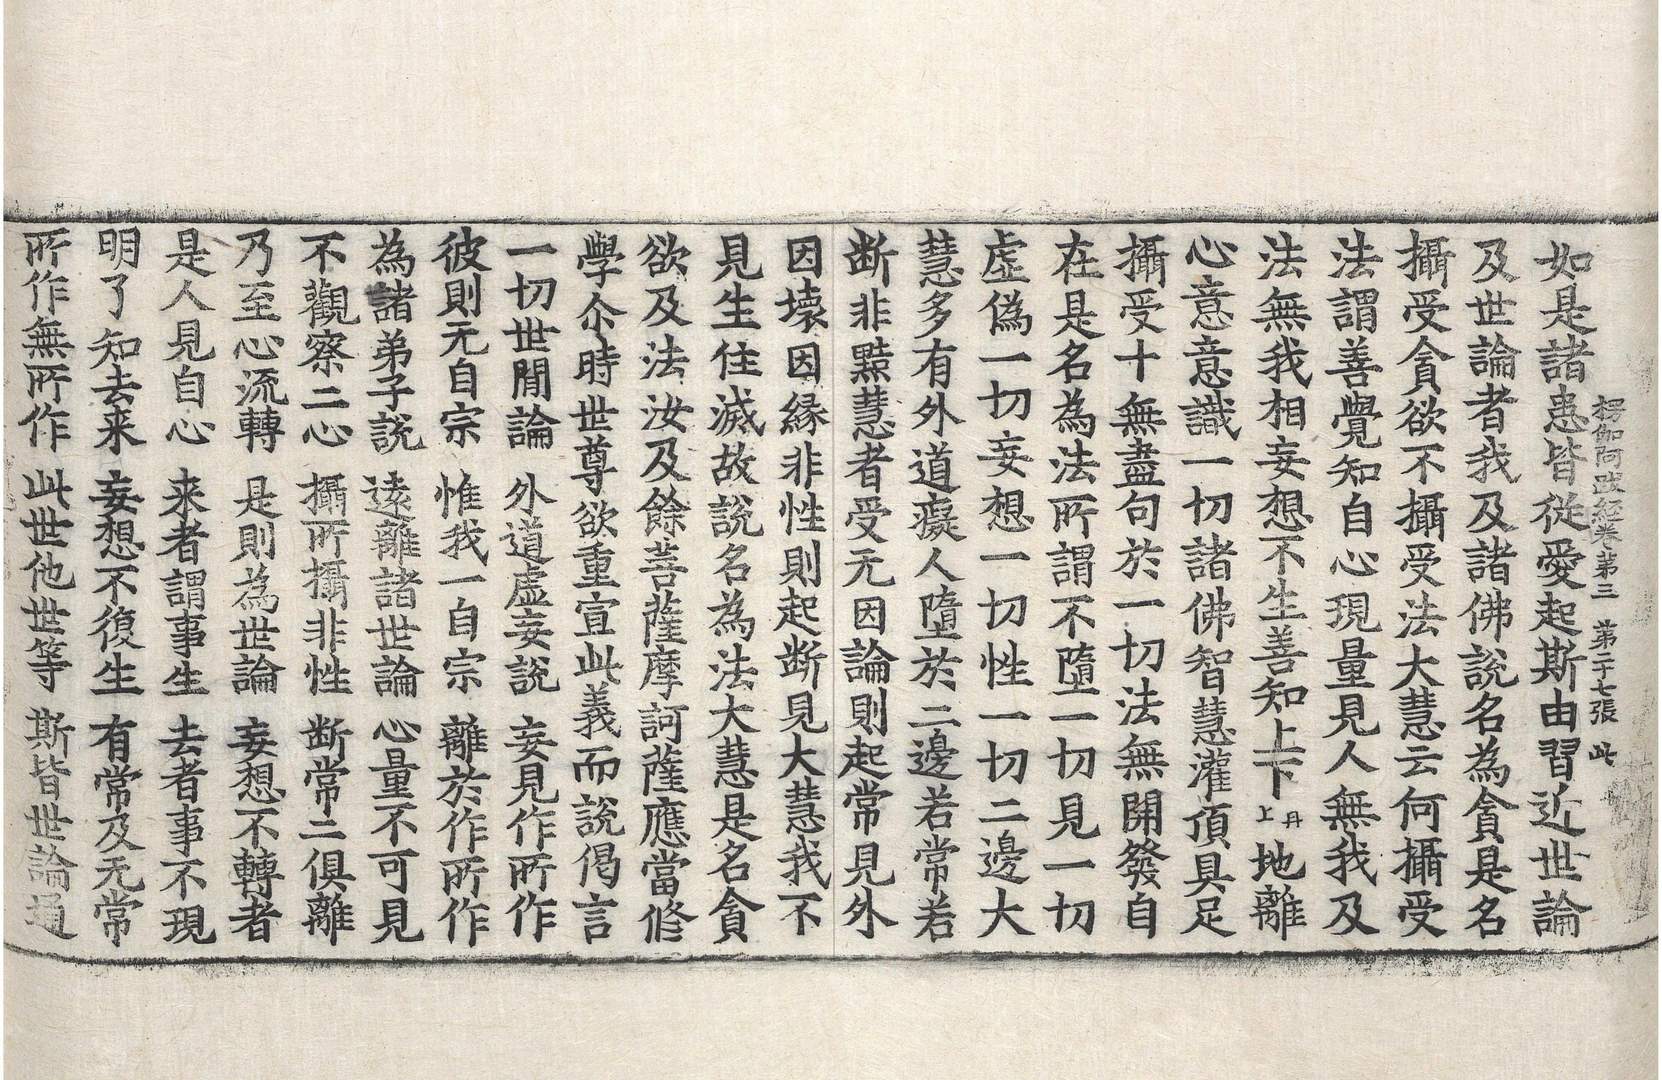 楞伽阿跋經卷第三 第二十七張 此
如是諸患皆從愛起斯由習近世論
及世論者我及諸佛說名為貪是名
攝受貪欲不攝受法大慧云何攝受
法謂善覺知自心現量見人無我及
法無我相妄想不生善知上下丹上地離
心意意識一切諸佛智慧灌頂具足
攝受十無盡句於一切法無開發自
在是名為法所謂不墮一切見一切
虛偽一切妄想一切性一切二邊大
慧多有外道癡人墮於二邊若常若
断非黠慧者受无因論則起常見外
因壞因緣非性則起断見大慧我不
見生住滅故說名為法大慧是名貪
欲及法汝及餘菩薩摩訶薩應當修
學尒時世尊欲重宣此義而說偈言
一切世間論 外道虛妄說 妄見作所作
彼則无自宗 惟我一自宗 離於作所作
為諸弟子說 遠離諸世論 心量不可見
不觀察二心 攝所攝非性 断常二俱離
乃至心流轉 是則為世論 妄想不轉者
是人見自心 来者謂事生 去者事不現
明了知去来 妄想不復生 有常及无常
所作無所作 此世他世等 斯皆世論通